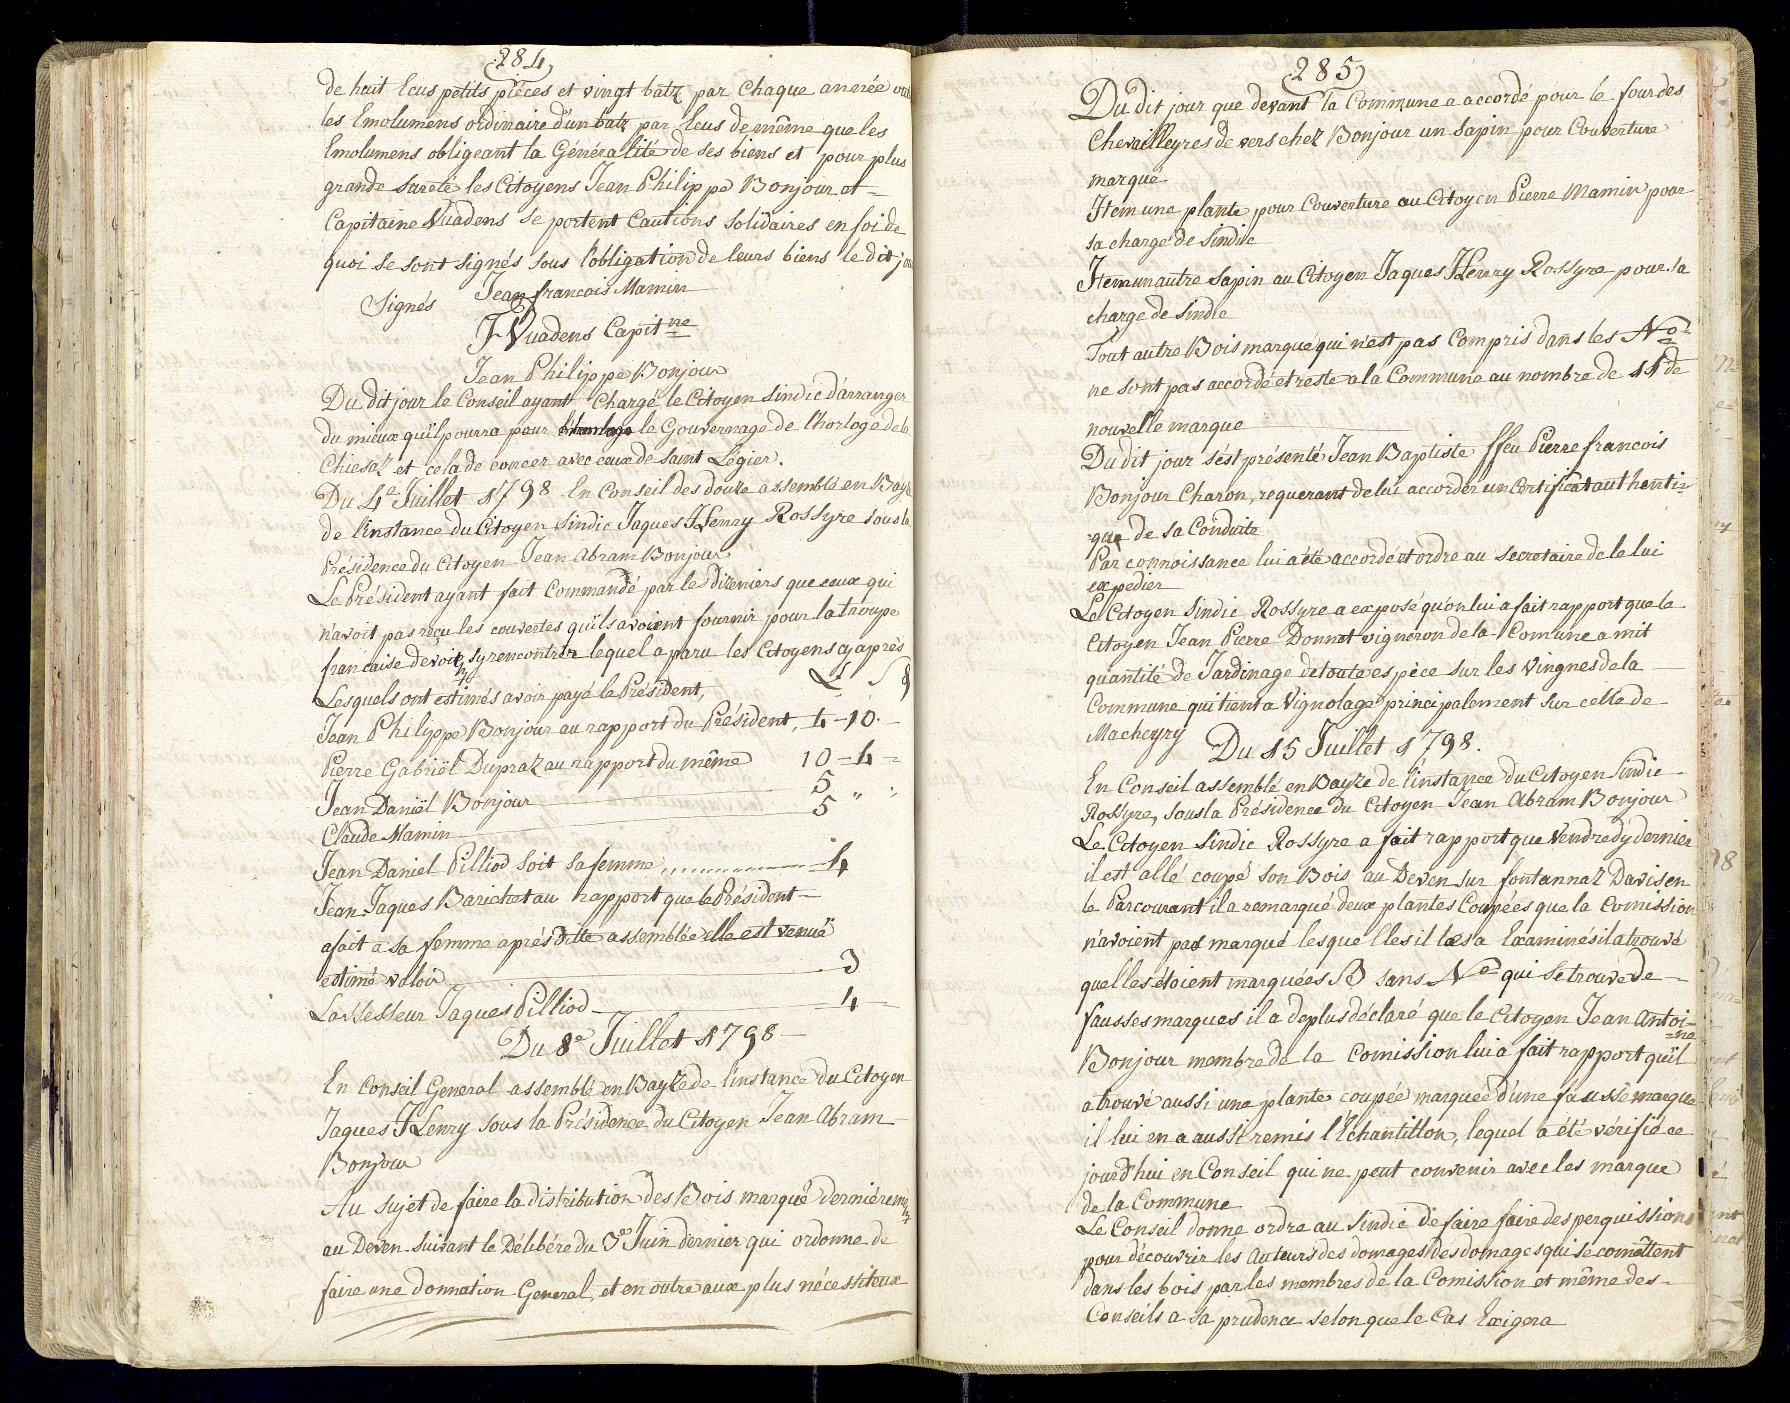 284
de huit Ecus petits piéces et vingt batz par Chaque année
les Emolumens ordinaire d'un batz par Ecus de même que les
Emolumens obligeant la Généralité de ses biens et pour plus
grande Sureté les Citoyens Jean Philippe Bonjour et
Capitaine Vuadens se portent Cautions Solidaires en foi de
quoi se sont signés sous l'obligation de leurs biens le dit
Signés Jean francois Mamin
J Vuadens Capit.ne
Jean Philippe Bonjour
Du dit jour le Conseil ayant Chargé le Citoyen Sindic d'arranger
du mieux qu'il pourra pour le Gouvernage de l'horloge de la
Chiesaz et cela de concer avec ceux de saint Légier.
Du 4e Juillet 1798 En Conseil des douze assemblé en Bayse
de l'instance du Citoyen Sindic Jaques Henry Rossyre sous la
Présidence du Citoyen Jean Abram Bonjour
Le Président ayant fait Commandé par les dizeniers que ceux qui
n'avoit pas reçu les couvertes qu'ils avoient fournir pour la troupe
francaise devoit sy rencontrer lequel a paru les Citoyens cy aprés
Lesquels ont estimés avoir payé le Président, L S
Jean Philippe Bonjour au rapport du Président, 4 - 10 -
Pierre Gabriël Dupraz au rapport du même 10 = 4 =
Jean Daniël Bonjour 5 " "
Claude Mamin 5
Jean Daniel Pilliod soit sa femme 4
Jean Jaques Barichet au rapport que le Président
a fait a sa femme aprés dite assemblée elle est venuë
estimé valoir 3
L'assesseur Jaques Pilliod 4
Du 8e Juillet 1798
En Conseil General assemblé en Bayze de l'instance du Citoyen
Jaques Henry sous la Présidence du Citoyen Jean Abram
Bonjour
Au sujet de faire la distribution des Bois marqué derniérement
au Deven suivant le Délibére du 3e Juin dernier qui ordonne de
faire une donnation General, et en outre aux plus nécessiteux
285
Du dit jour que devant la Commune a accordé pour le four des
Chevalleyres de vers chez Bonjour un Sapin pour Couverture
marqué
Item une plante pour Couverture au Citoyen Pierre Mamin pour
sa charge de Sindic
Item un autre Sapin au Citoyen Jaques Henry Rossyre pour sa
charge de Sindic
Tout autre Bois marqué qui n'est pas Compris dans les No
ne sont pas accordé et reste a la Commune au nombre de 11 de
nouvelle marque
Du dit jour s'est présenté Jean Baptiste ffeu Pierre francois
Bonjour Charon, requerant de lui accorder un Certificat authenti=
que de sa Conduite
Par connoissance lui a été accordé et ordre au secretaire de le lui
expedier
Le Citoyen Sindic Rossyre a exposé qu'on lui a fait rapport que le
Citoyen Jean Pierre Donnot vigneron de la Comune a mit
quantité de Jardinage de toute espéce sur les Vingnes de la
Commune qui tient a Vignolage principalement sur celle de
Macheyry
Du 15 Juillet 1798.
En Conseil assemblé en Bayze de l'instance du Citoyen Sindic
Rossyre, sous la Présidence du Citoyen Jean Abram Bonjour
Le Citoyen Sindic Rossyre a fait rapport que Vendredy dernier
il est allé coupé son Bois au Deven sur fontannaz Davis en
le Parcourant il a remarqué deux plantes Coupées que la Comission
n'avoient pas marqué lesquelles il les a Examinés il a trouvé
quelles étoient marquées B sans No qui se trouve de
fausses marques il a deplus déclaré que le Citoyen Jean Antoi=
=ne
Bonjour membre de la Comission lui a fait rapport qu'il
a trouvé aussi une plante coupée marquée d'une fausse marque
il lui en a aussi remis l'Echantillon, lequel a été vérifié ce
jourd'hui en Conseil qui ne peut convenir avec les marque
de la Commune
Le Conseil donne ordre au Sindic de faire faire des perquissions
pour découvrir les Auteurs des domages des domages qui se comêttent
dans les bois par les membres de la Comission et même des
Conseils a sa prudence selon que le Cas Exigera